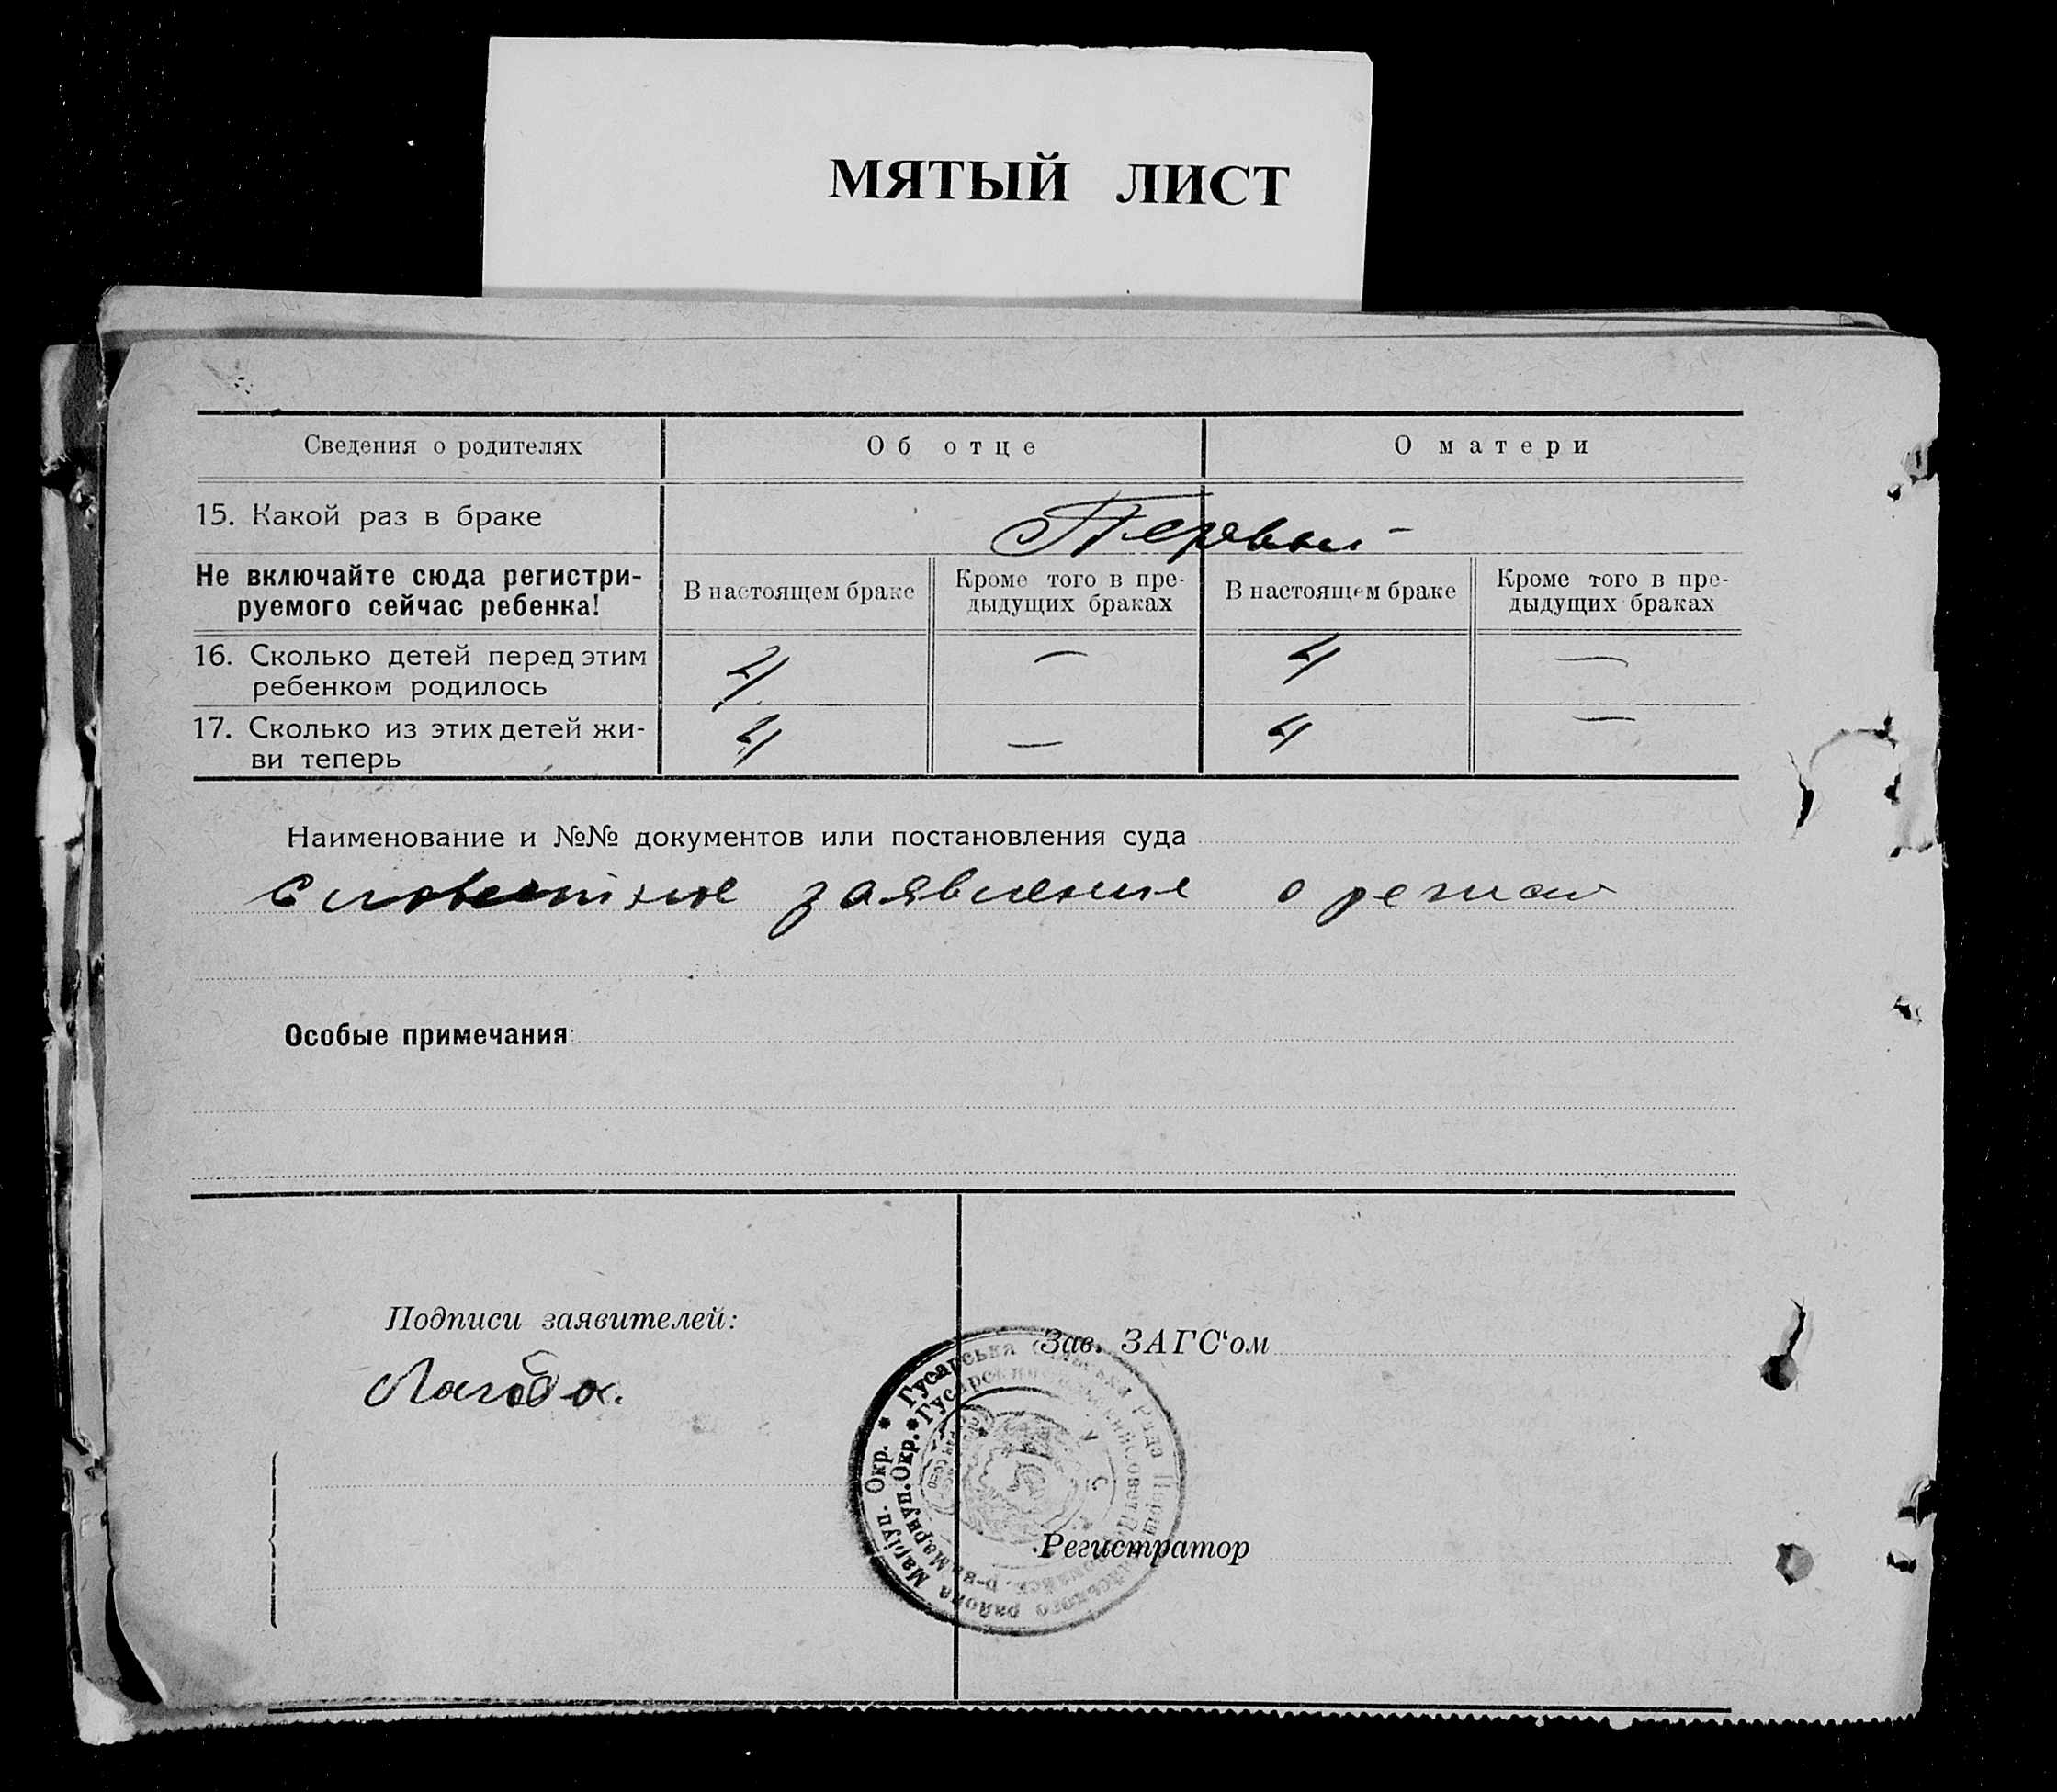 МЯТЫЙ ЛИСТ
Сведения о родителях Об отце О матери
15. Какой раз в браке Первый
Не включайте сюда регистри-
руемого сейчас ребенка!
В настоящем браке
Кроме того в пре-
дыдущих браках
В настоящем браке
Кроме того в пре-
дыдущих браках
16. Сколько детей перед этим
ребенком родилось
4 — 4 —
17. Сколько из этих детей жи-
ви теперь
4 — 4 —
Наименование и №№ документов или постановления суда
Словестное заявление о
Особые примечания:
Подписи заявителей:
Зав. ЗАГС‘ом
Регистратор
* Гусарська Рада района Маріуп. Окр.
* р-на Мариуп. Окр.